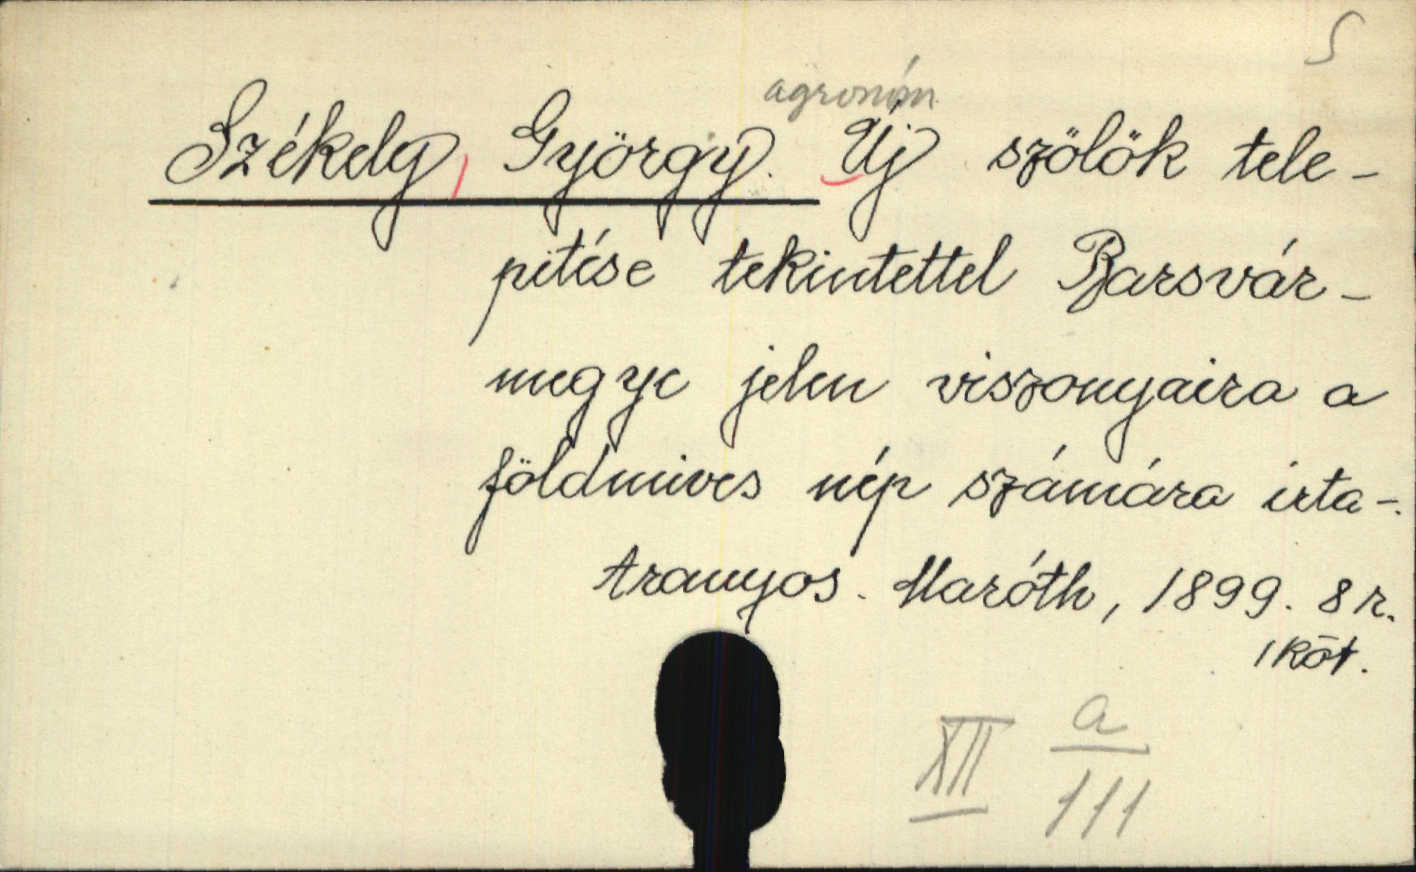 S
agronóm
Székely, György. Uj szölök tele-
pitése tekintettel Barsvár-
megye jelen viszonyaira a
földmives nép számára irta-.
Aranyos. Maróth, 1899. 8 r.
1 köt.
XII a
111